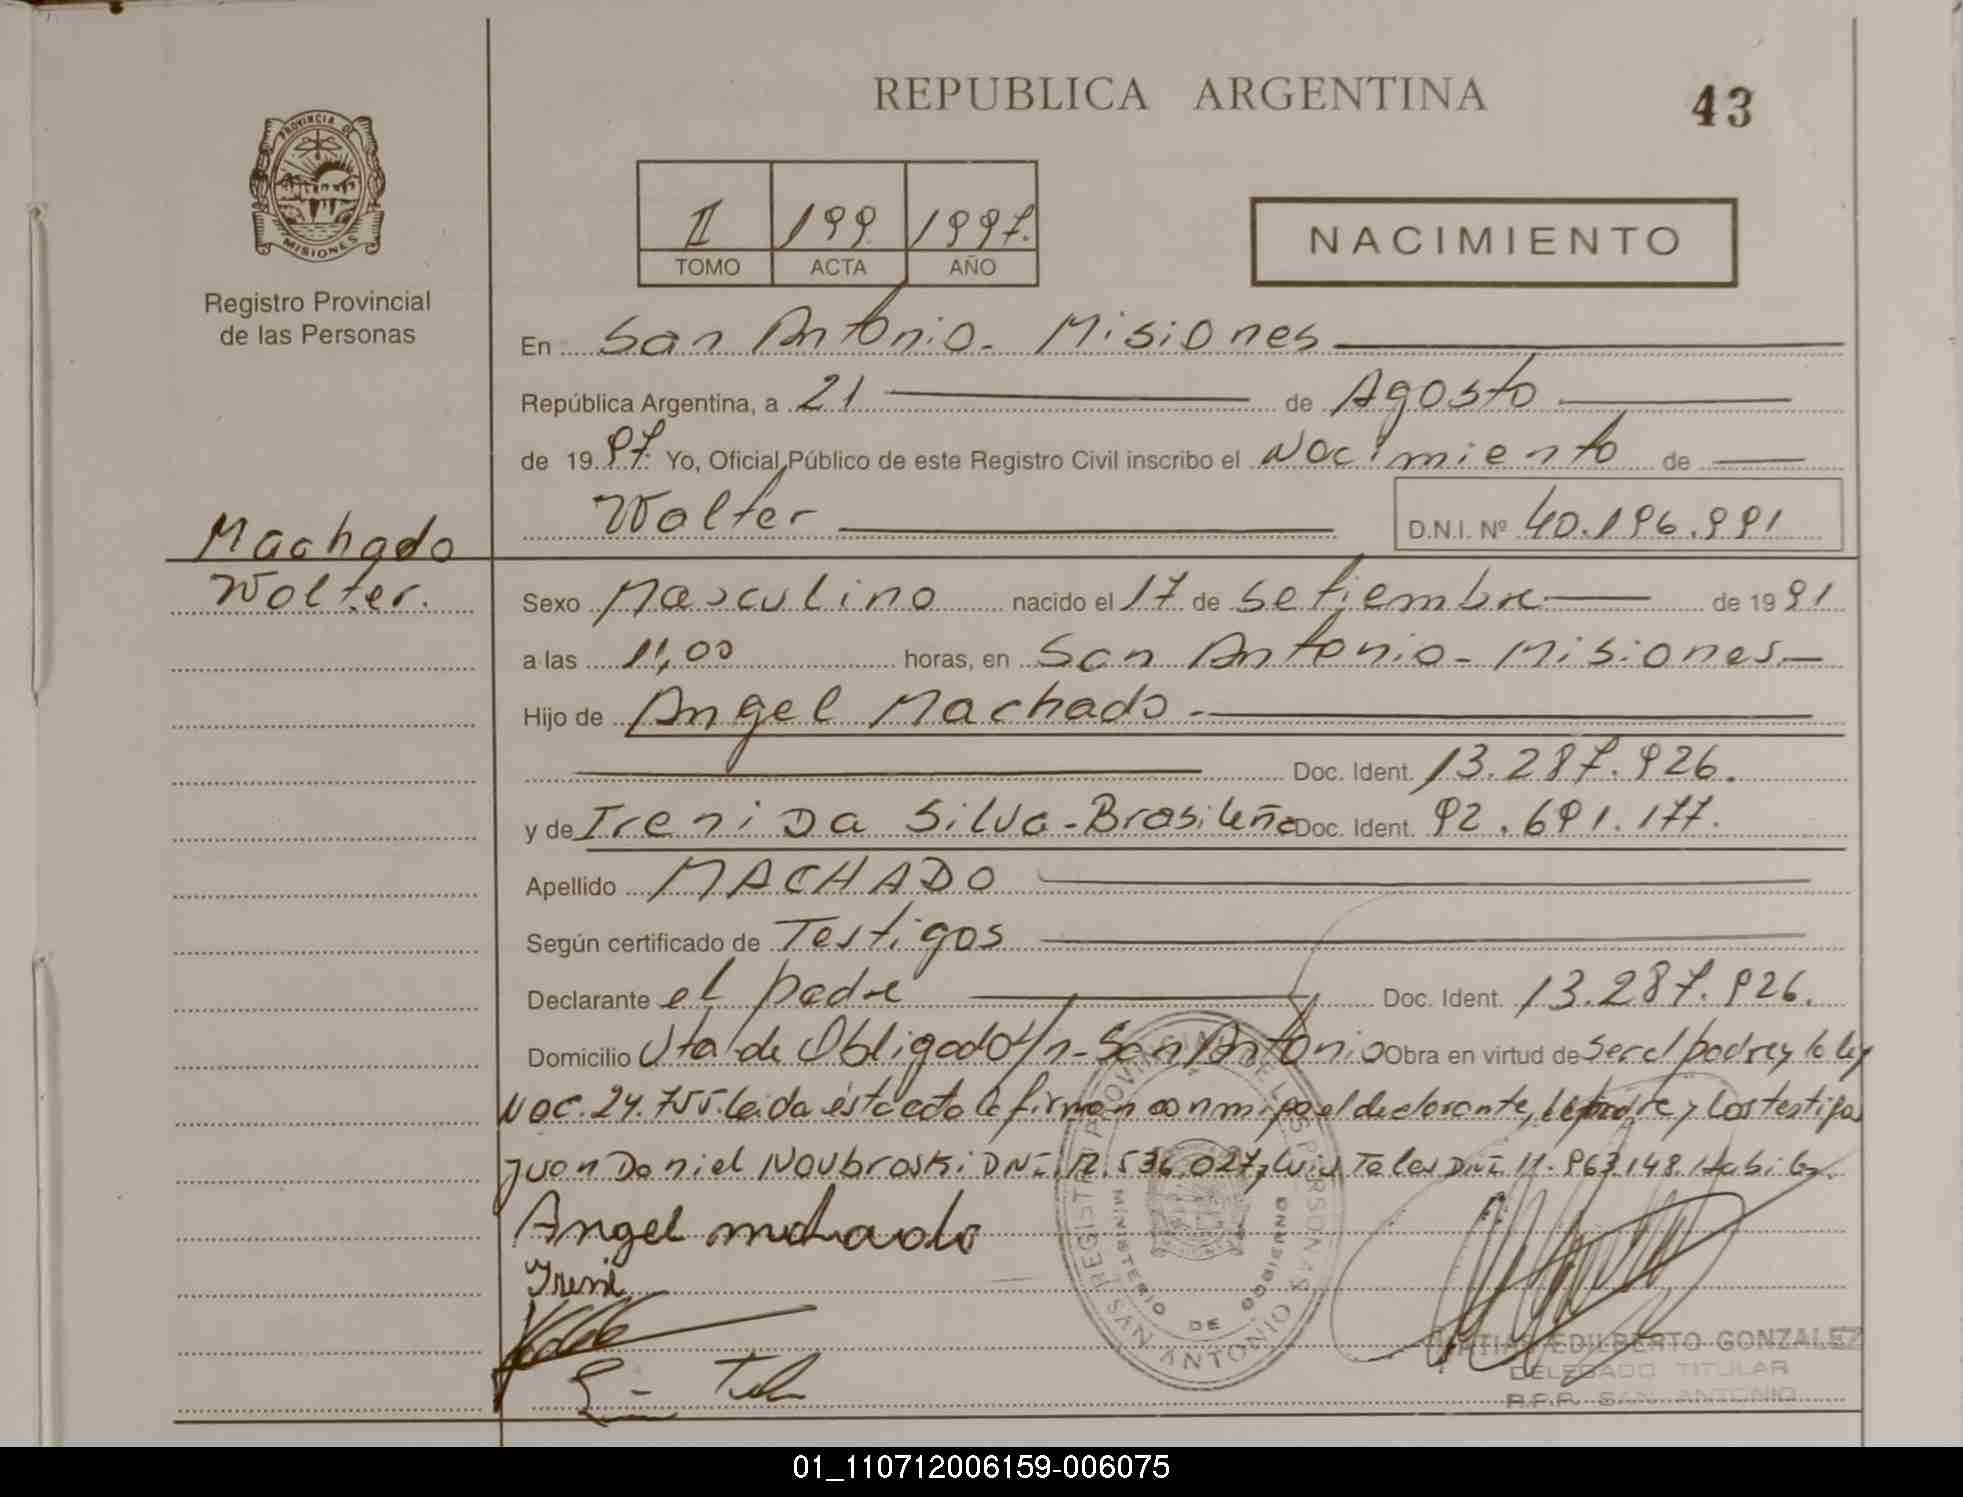 REPUBLICA ARGENTINA
43
PROVINCIA DE
MISIONES
Registro Provincial
de las Personas
II 199 1997.
TOMO ACTA AÑO
NACIMIENTO
En San Antonio - Misiones
República Argentina, a 21 de Agosto
de 1997. Yo, Oficial Público de este Registro Civil inscribo el Nacimiento de
Walter D.N.I. Nº 40.196.991
Machado
Walter.
Sexo Masculino nacido el 17 de Setiembre de 1991
a las 11,00 horas, en San Antonio - Misiones
Hijo de Angel Machado -
Doc. Ident. 13.287.926.
y de Ireni Da Silva - Brasileña Doc. Ident. 92.691.177.
Apellido MACHADO
Según certificado de Testigos
Declarante el padre Doc. Ident. 13.287.926.
Domicilio Vta de Obligado s/n - San Antonio Obra en virtud de ser el padre y la ley
Nac. 24.755. Leida ésta acta la firman conmigo el declarante, la madre y los testigos
Juan Daniel DNI. 12.536.027 y Luis Teles DNI 11.963.148. Habiles.
Angel machado
Ireni
REGISTRO PROVINCIAL DE LAS PERSONAS
MINISTERIO DE GOBIERNO
SAN ANTONIO
EDILBERTO GONZALEZ
DELEGADO TITULAR
R.P.P. SAN ANTONIO
01_110712006159-006075